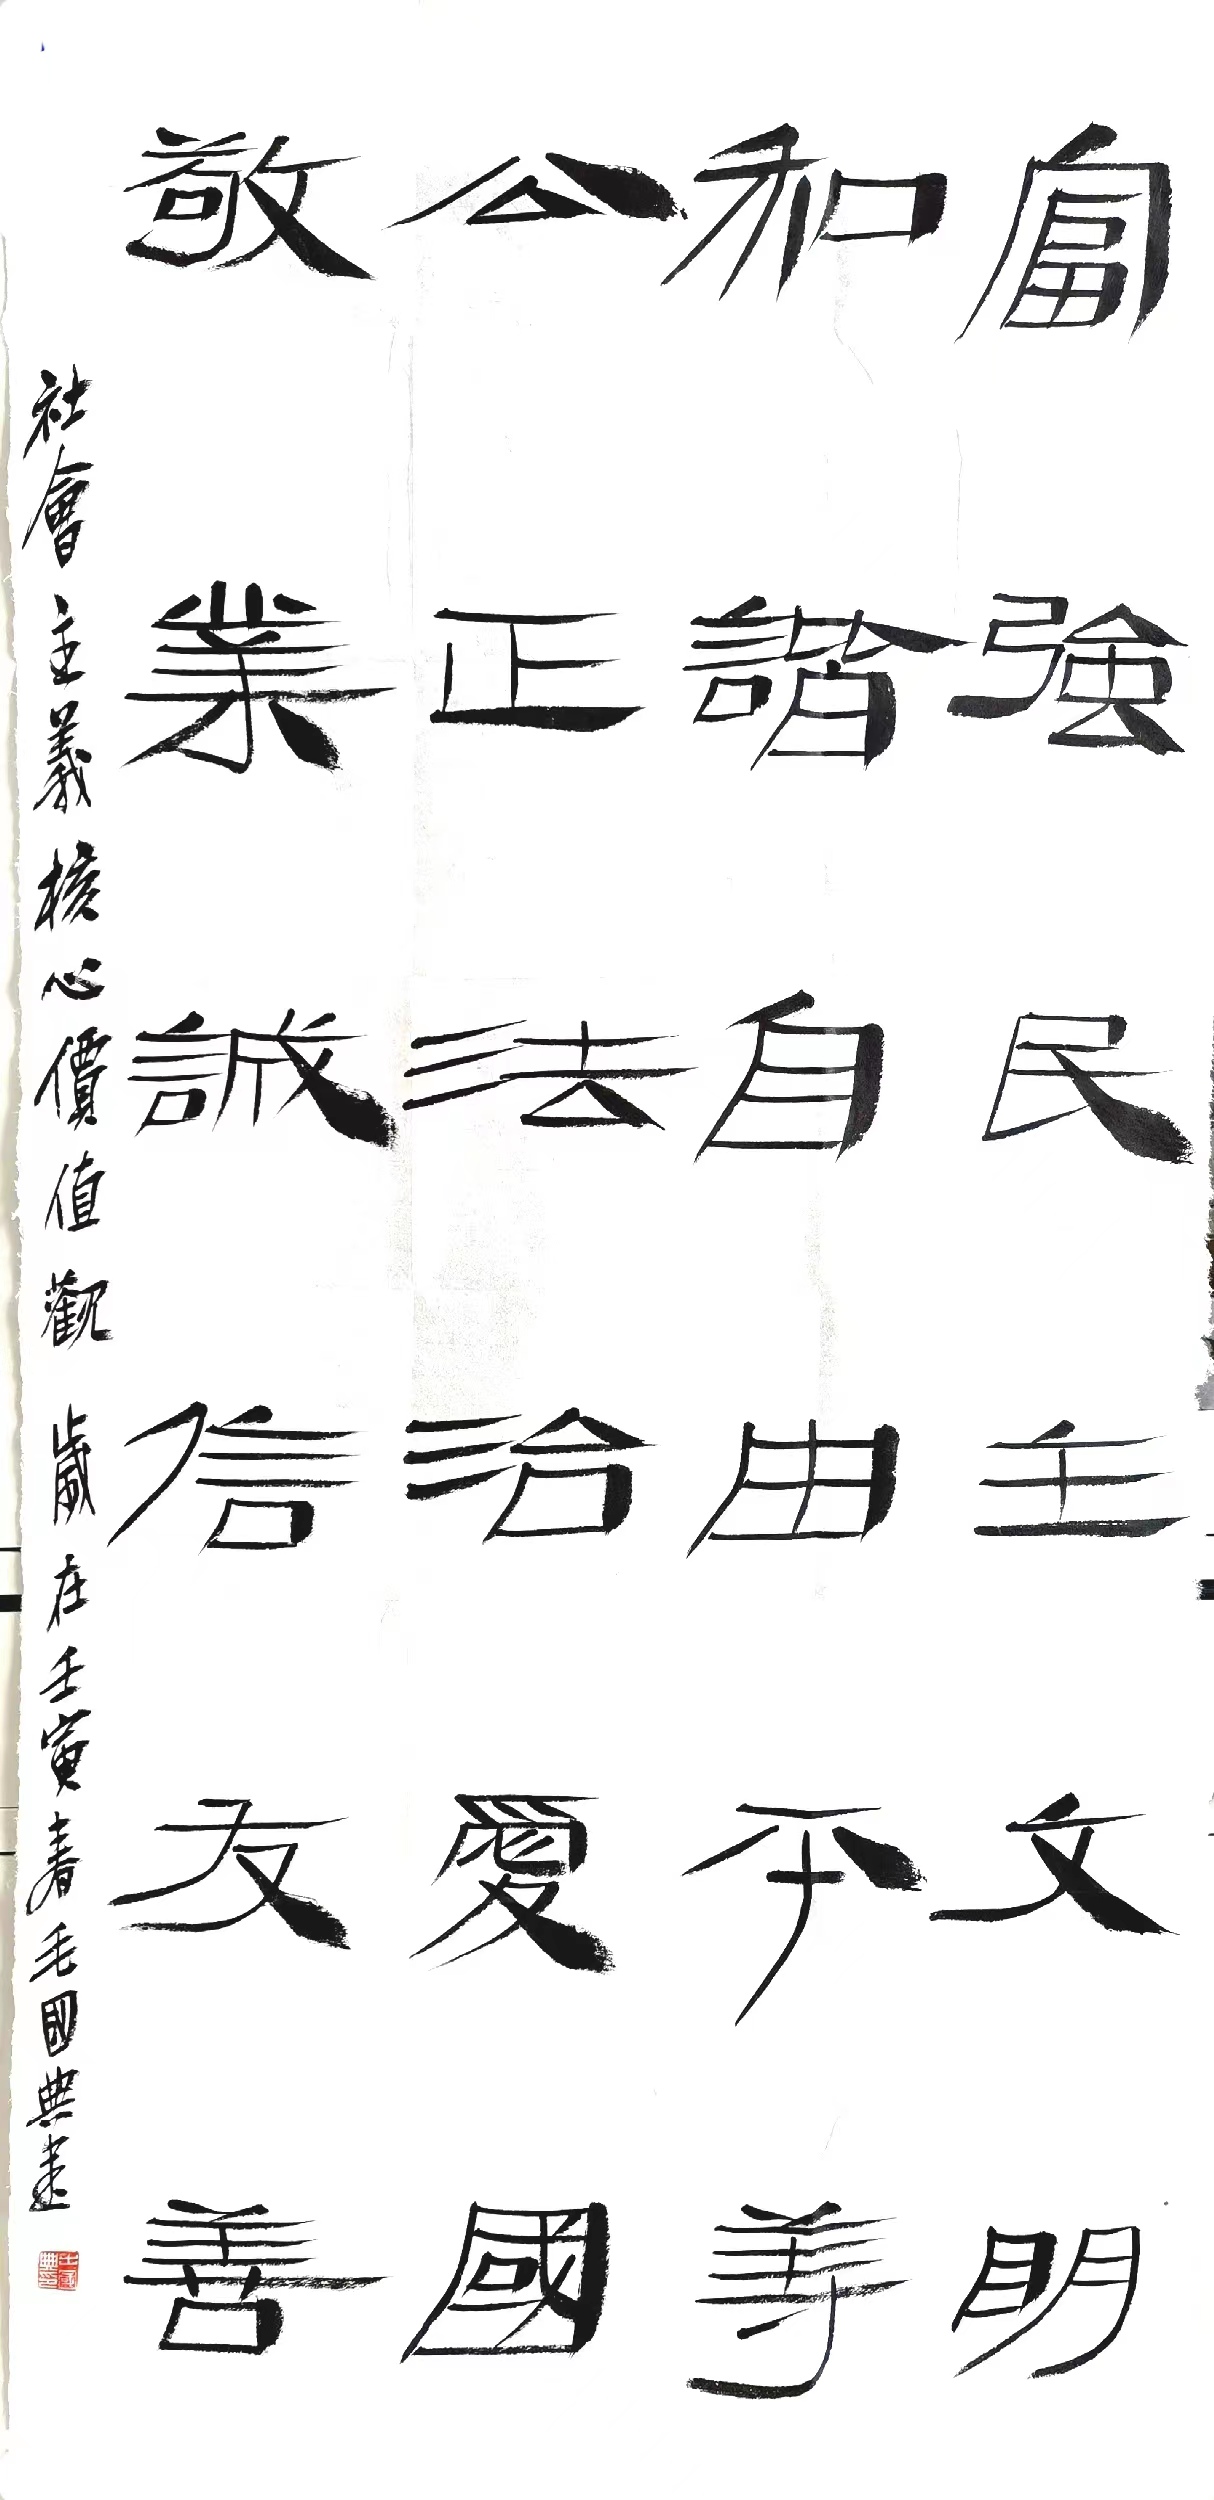 富強民主文明
和諧自由平等
公正法治愛國
敬業誠信友善
社會主義核心價值觀 歲在壬寅春毛國典書